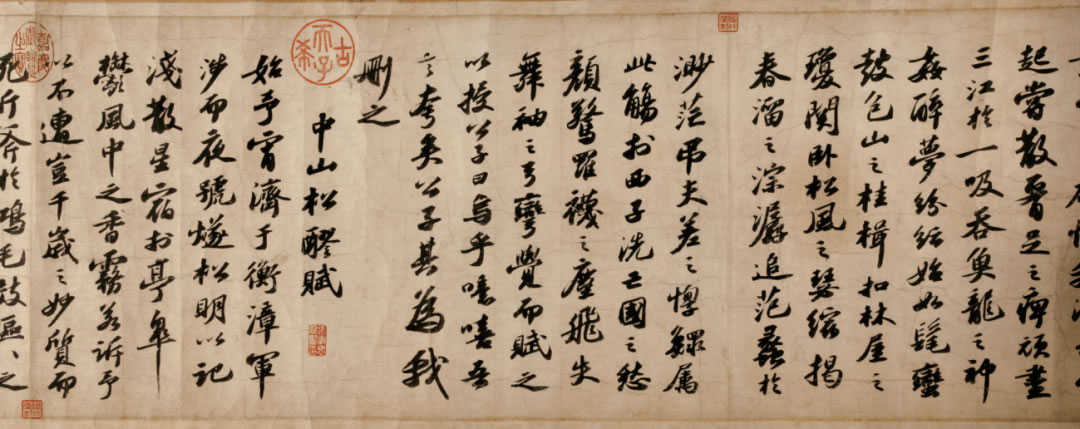 起嘗散腰足之痹頑盡
三江於一吸吞魚龍之神
姦醉夢紛紜始如髦蠻
鼓包山之桂楫扣林屋之
瓊關臥松風之瑟縮揭
春溜之淙潺追范蠡於
渺茫弔夫差之惸鰥屬
此觴於西子洗亡國之愁
顏驚羅襪之塵飛失
舞袖之弓彎覺而賦之
以授公子曰烏乎噫嘻吾
言夸矣公子其為我
刪之
古希天子
中山松醪賦
始予宵濟于衡漳軍
涉而夜號燧松明以記
淺散星宿於亭皋
鬱風中之香霧若訴予
以不遭豈千歲之妙質而
死斤斧於鴻毛效區區之